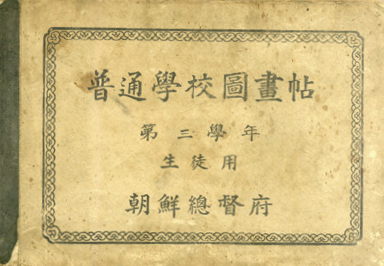 普通學校圖畫帖
第三學年
生徒用
朝鮮總督府